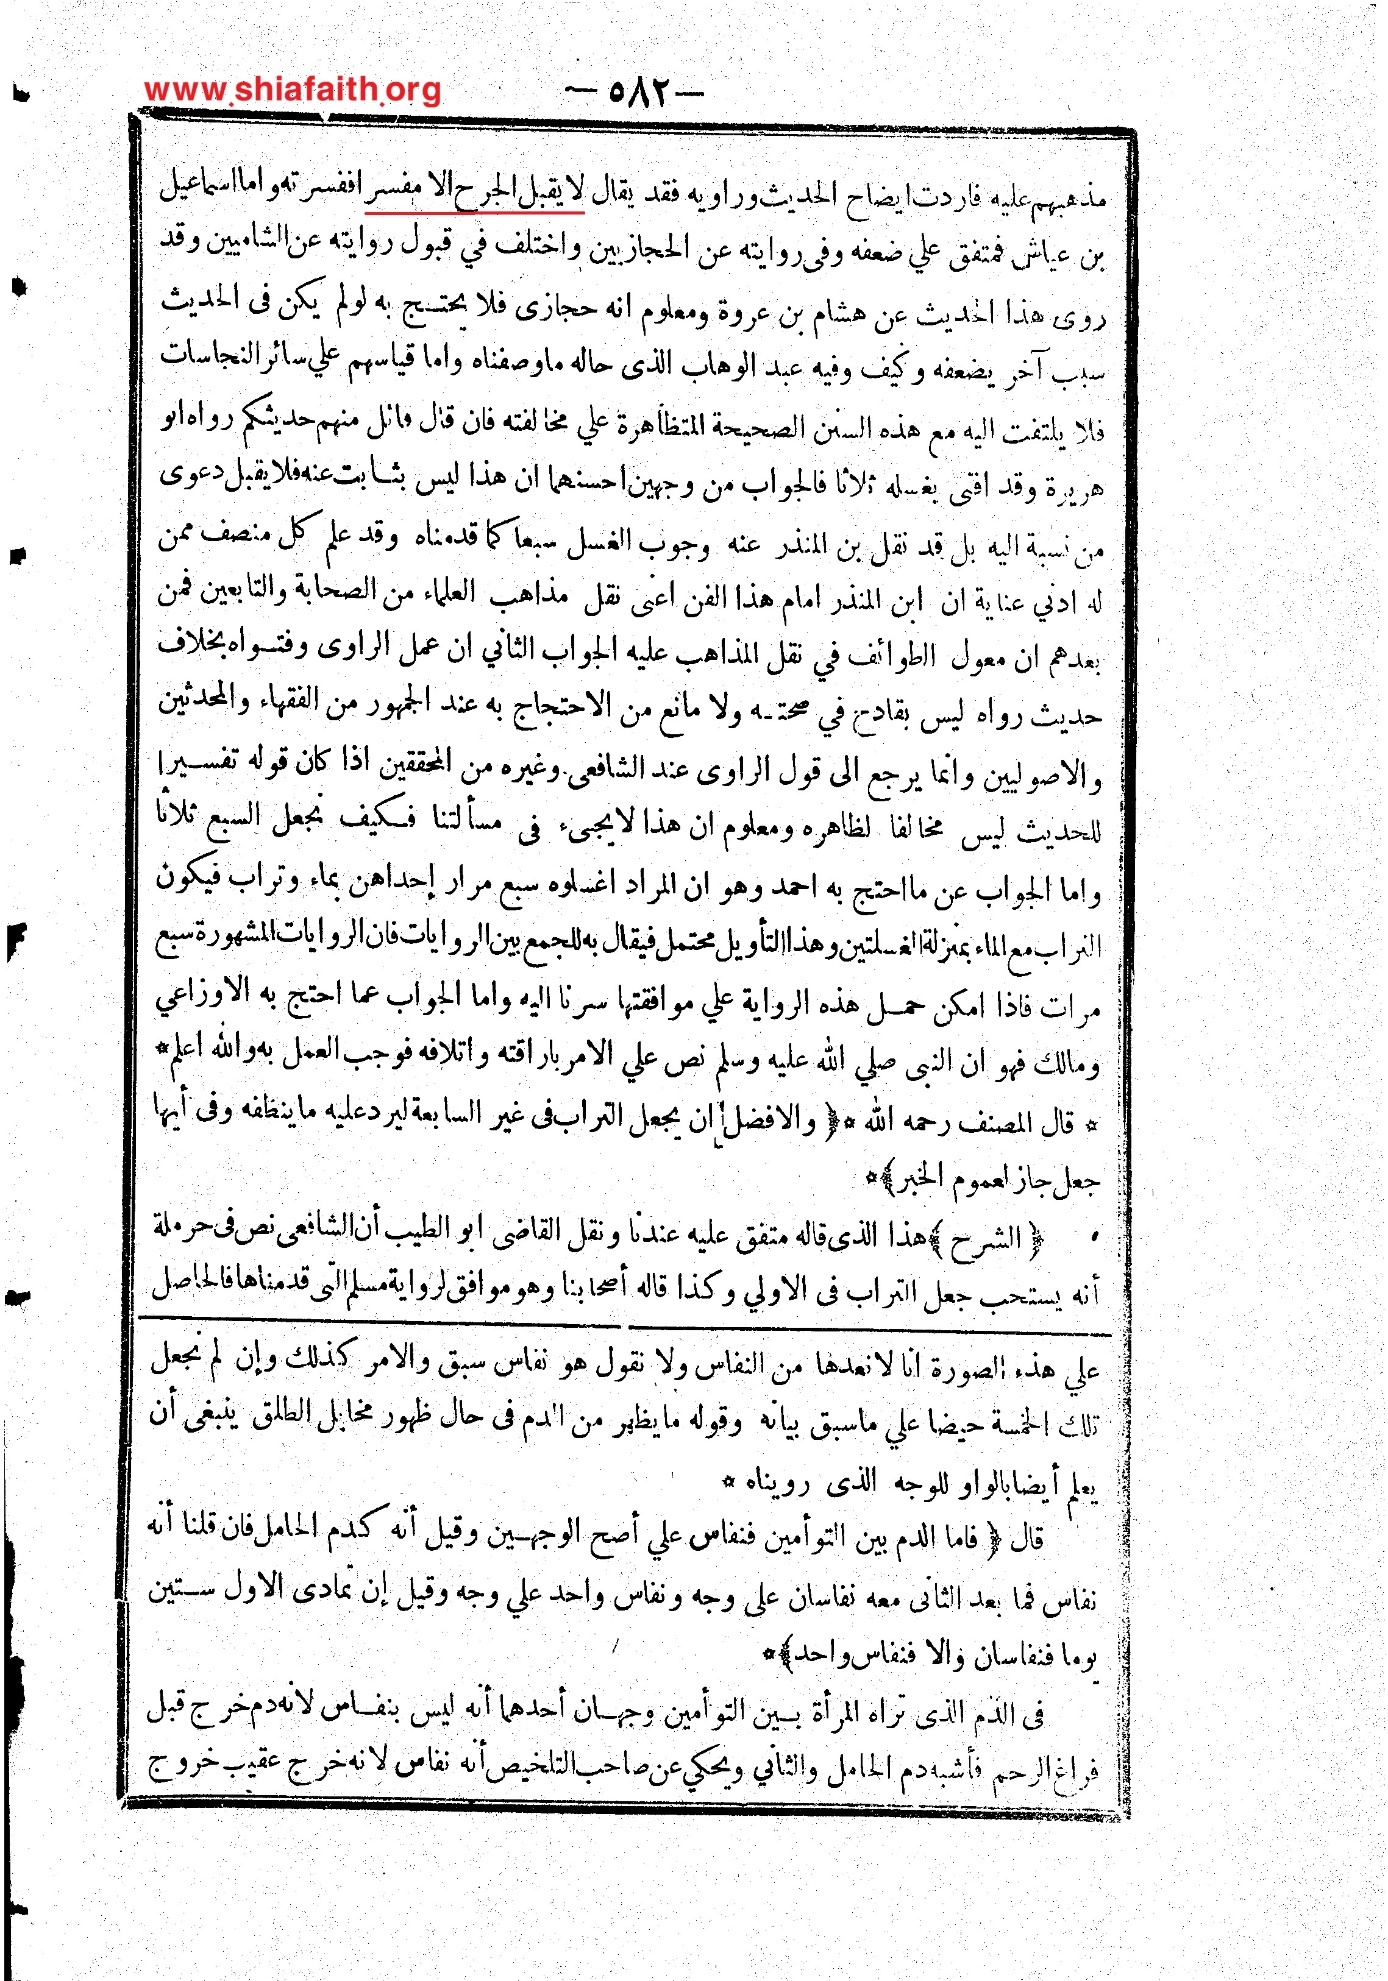 www.shiafaith.org
— ٥٨٢ —
مذهبهم عليه فاردت ايضاح الحديث وراويه فقد يقال لا يقبل الجرح الا مفسرا ففسرته واما اسماعيل
بن عياش فمتفق علي ضعفه وفى روايته عن الحجازيين واختلف في قبول روايته عن الشاميين وقد
روى هذا الحديث عن هشام بن عروة ومعلوم انه حجازى فلا يحتج به لو لم يكن فى الحديث
سبب آخر يضعفه وكيف وفيه عبد الوهاب الذى حاله ما وصفناه واما قياسهم علي سائر النجاسات
فلا يلتفت اليه مع هذه السنن الصحيحة المتظاهرة علي مخالفته فان قال قائل منهم حديثكم رواه ابو
هريرة وقد افتى بغسله ثلاثا فالجواب من وجهين احسنهما ان هذا ليس بثابت عنه فلا يقبل دعوى
من نسبة اليه بل قد نقل بن المنذر عنه وجوب الغسل سبعا كما قدمناه وقد علم كل منصف ممن
له ادني عناية ان ابن المنذر امام هذا الفن اعنى نقل مذاهب العلماء من الصحابة والتابعين فمن
بعدهم ان معول الطوائف في نقل المذاهب عليه الجواب الثاني ان عمل الراوى وفتواه بخلاف
حديث رواه ليس بقادح في صحته ولا مانع من الاحتجاج به عند الجمهور من الفقهاء والمحدثين
والاصوليين وانما يرجع الى قول الراوى عند الشافعى وغيره من المحققين اذا كان قوله تفسيرا
للحديث ليس مخالفا لظاهره ومعلوم ان هذا لا يجىء فى مسألتنا فكيف نجعل السبع ثلاثا
واما الجواب عن ما احتج به احمد وهو ان المراد اغسلوه سبع مرار إحداهن بماء وتراب فيكون
التراب مع الماء بمنزلة الغسلتين وهذا التأويل محتمل فيقال به للجمع بين الروايات فان الروايات المشهورة سبع
مرات فاذا امكن حمل هذه الرواية علي موافقتها سرنا اليه واما الجواب عما احتج به الاوزاعي
ومالك فهو ان النبى صلي الله عليه وسلم نص علي الامر باراقته واتلافه فوجب العمل به والله اعلم *
* قال المصنف رحمه الله * ﴿ والافضل ان يجعل التراب فى غير السابعة ليرد عليه ما ينظفه وفى أيها
جعل جاز لعموم الخبر ﴾ *
• ﴿ الشرح ﴾ هذا الذى قاله متفق عليه عندنا ونقل القاضى ابو الطيب أن الشافعى نص فى حرملة
أنه يستحب جعل التراب فى الاولي وكذا قاله أصحابنا وهو موافق لرواية مسلم التى قدمناها فالحاصل
علي هذه الصورة انا لا نعدها من النفاس ولا نقول هو نفاس سبق والامر كذلك وإن لم نجعل
تلك الخمسة حيضا علي ما سبق بيانه وقوله ما يظهر من الدم فى حال ظهور مخايل الطلق ينبغى أن
يعلم أيضا بالواو للوجه الذى رويناه *
قال ﴿ فاما الدم بين التوأمين فنفاس علي أصح الوجهين وقيل أنه كدم الحامل فان قلنا أنه
نفاس فما بعد الثانى معه نفاسان على وجه ونفاس واحد علي وجه وقيل إن تمادى الاول ستين
يوما فنفاسان والا فنفاس واحد ﴾ *
فى الدم الذى تراه المرأة بين التوأمين وجهان أحدهما أنه ليس بنفاس لانه دم خرج قبل
فراغ الرحم فأشبه دم الحامل والثاني ويحكي عن صاحب التلخيص أنه نفاس لانه خرج عقيب خروج